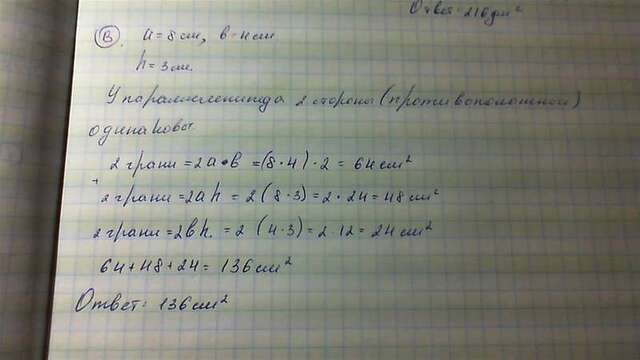 Ответ: 216 дм²
В. a = 8 см, b = 4 см
h = 3 см.
У параллелепипеда 2 стороны (противоположной)
одинаковы
2 грани = 2a•b = (8·4)·2 = 64 см²
2 грани = 2ah = 2(8·3) = 2·24 = 48 см²
2 грани = 2bh. = 2 (4·3) = 2·12 = 24 см²
64+48+24 = 136 см²
Ответ: 136 см²